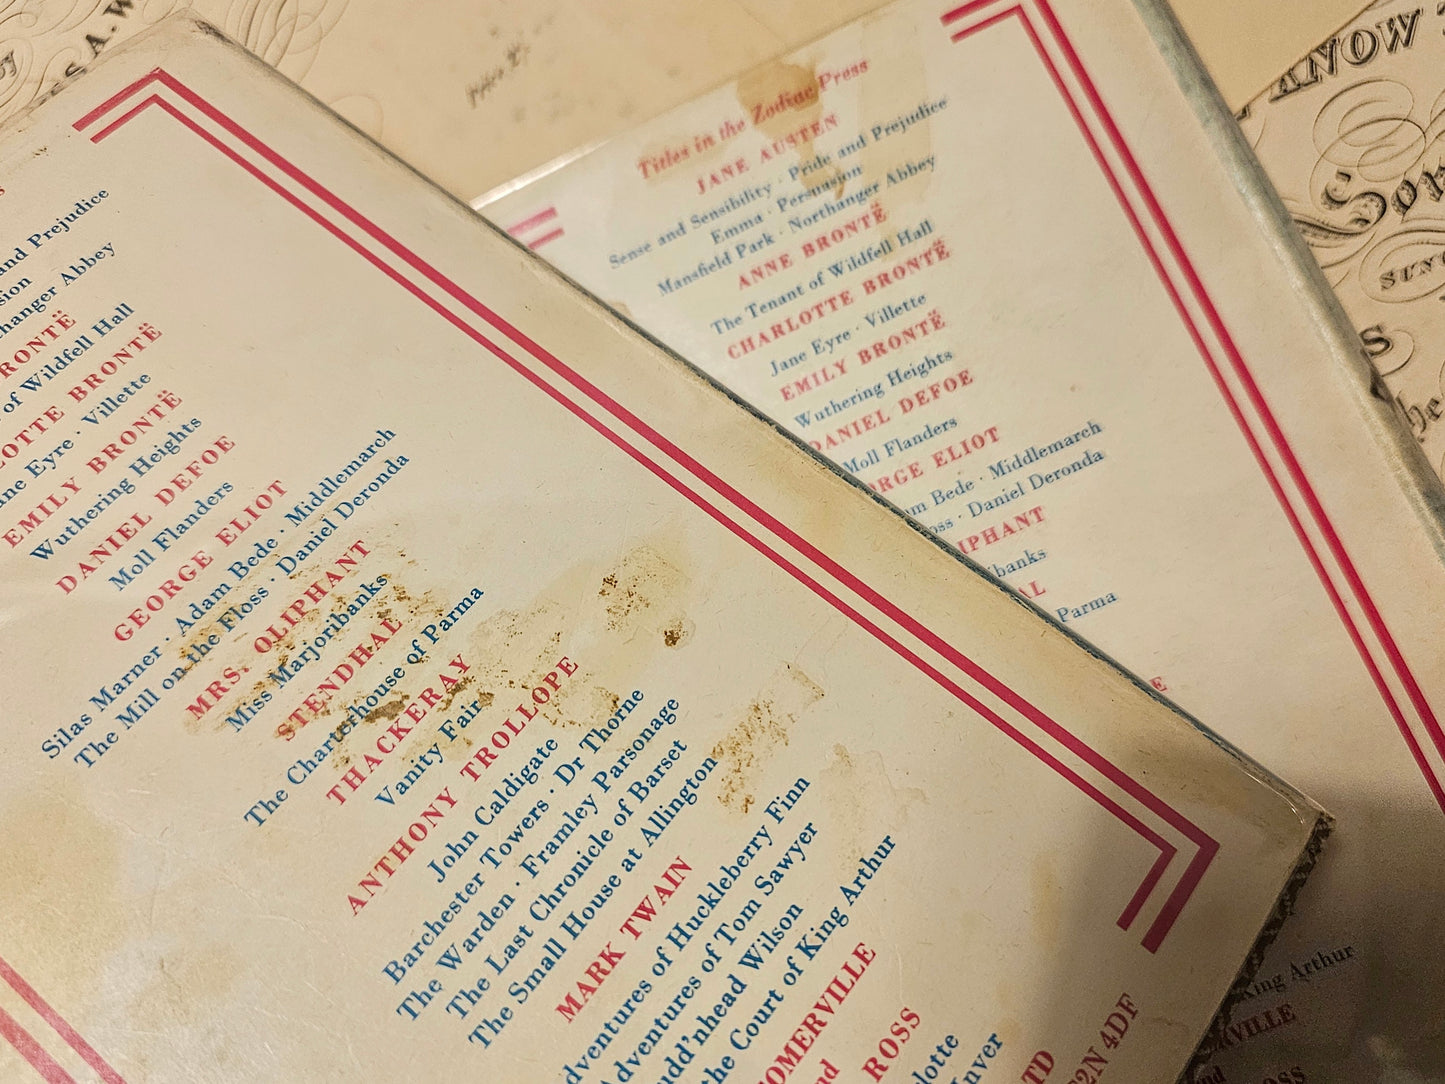 and Prejudice
changer Abbey
of Wildfell Hall
LOTTE BRONTË
ane Eyre · Villette
EMILY BRONTË
Wuthering Heights
DANIEL DEFOE
Moll Flanders
GEORGE ELIOT
Silas Marner · Adam Bede · Middlemarch
The Mill on the Floss · Daniel Deronda
MRS. OLIPHANT
Miss Marjoribanks
STENDHAL
The Charterhouse of Parma
THACKERAY
Vanity Fair
ANTHONY TROLLOPE
John Caldigate
Barchester Towers · Dr Thorne
The Warden · Framley Parsonage
The Last Chronicle of Barset
The Small House at Allington
MARK TWAIN
dventures of Huckleberry Finn
Adventures of Tom Sawyer
udd'nhead Wilson
the Court of King Arthur
OMERVILLE
nd
ROSS
lotte
Inver
TD
2N 4DF
Titles in the Zodiac Press
JANE AUSTEN
Sense and Sensibility · Pride and Prejudice
Emma · Persuasion
Mansfield Park · Northanger Abbey
ANNE BRONTË
The Tenant of Wildfell Hall
CHARLOTTE BRONTË
Jane Eyre · Villette
EMILY BRONTË
Wuthering Heights
DANIEL DEFOE
Moll Flanders
ORGE ELIOT
am Bede · Middlemarch
oss · Daniel Deronda
IPHANT
ibanks
AL
Parma
E
King Arthur
RVILLE
nd
OSS
KNOW